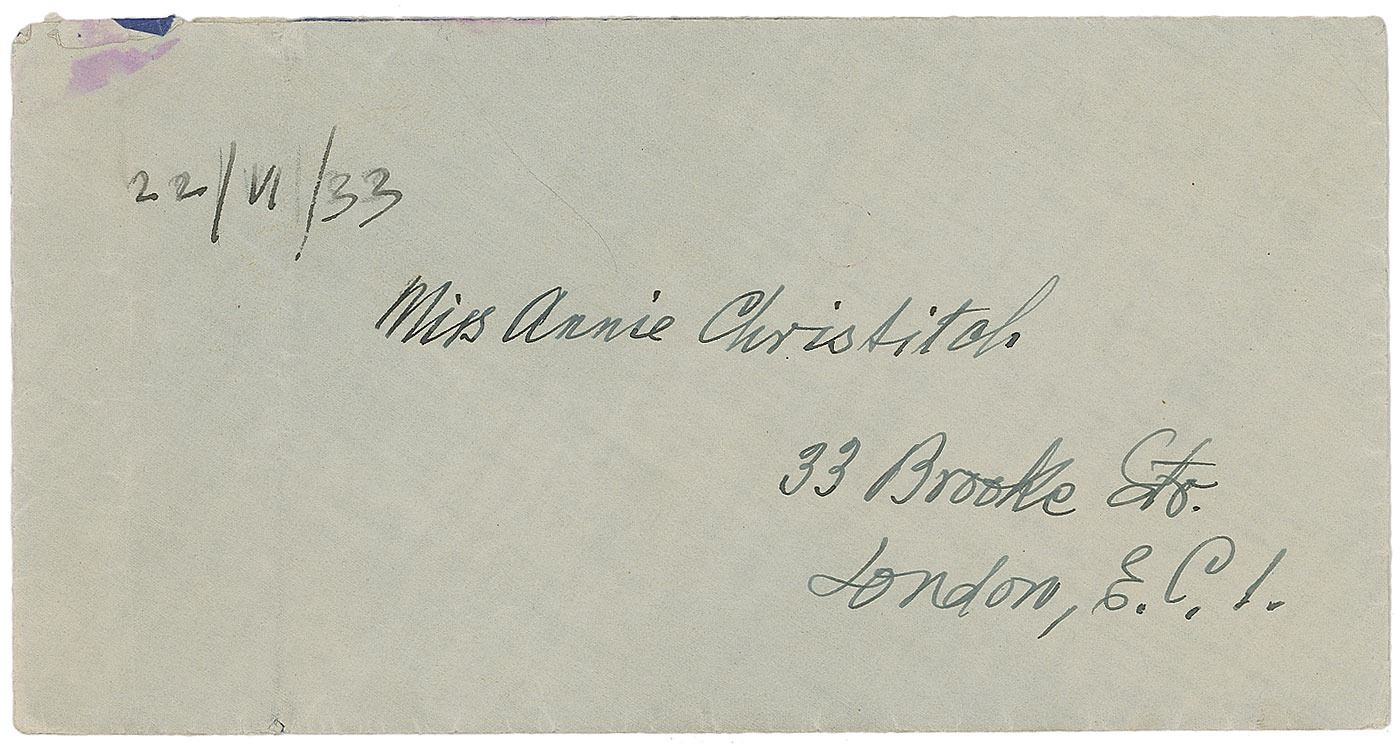 22/VI/33
Miss Annie Christitch
33 Brooke Str.
London, E.C.1.